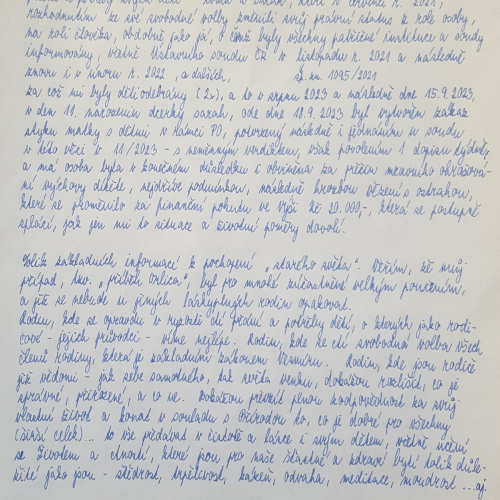 rozhodnutím ze své svobodné volby změnili svůj právní status z role osoby,
na roli člověka, obdobně jako já, o čemž byly všechny patřičné instituce a soudy
informovány, včetně Ústavního soudu ČR v listopadu r. 2021 a následně
znovu i v únoru r. 2022, a dalších, sp. zn. 1095/2021
za což mi byly děti odebrány (2x), a to v srpnu 2023 a následně dne 15.9.2023,
v den 11. narozenin dcerky Sarah, ode dne 18.9.2023 byl vytvořen zákaz
styku matky s dětmi v rámci PO, potvrzený následně i jednáním u soudu
v této věci v 11/2023 - s neměnným verdiktem, však povolením 1 dopisu týdně,
a má osoba byla v konečném důsledku i obviněna za přečin mravního ohrožová-
ní výchovy dítěte, nejdříve podmínkou, následně hrozbou vězení s ostrahou,
které se proměnilo za finanční pokutu ve výši Kč 20.000,-, která se postupně
splácí, jak jen mi to situace a životní poměry dovolí.
Tolik základních informací k pochopení „starého světa". Věřím, že můj
případ, tzv. „příběh Orlice", byl pro mnohé zúčastněné velkým poučením,
a již se nebude u jiných láskyplných rodin opakovat.
Rodin, kde se opravdu v ryzosti ctí přání a potřeby dětí, o kterých jako rodi-
čové - jejich průvodci - víme nejlépe. Rodin, kde se ctí svobodná volba všech
členů rodiny, která je základním zákonem Vesmíru. Rodin, kde jsou rodiče
již vědomí - jak sebe samotného, tak světa venku, dokážou rozlišit, co je
správné, přirozené, a co ne. Dokážou převzít plnou zodpovědnost za svůj
vlastní život a konat v souladu s Přírodou to, co je dobré pro všechny
(širší celek)... to vše předávat v čistotě a lásce i svým dětem, včetně učení
se životem a ctností, které jsou pro naše šťastné a zdravé bytí tolik důle-
žité jako jsou - štědrost, trpělivost, kázeň, odvaha, meditace, moudrost ...aj.